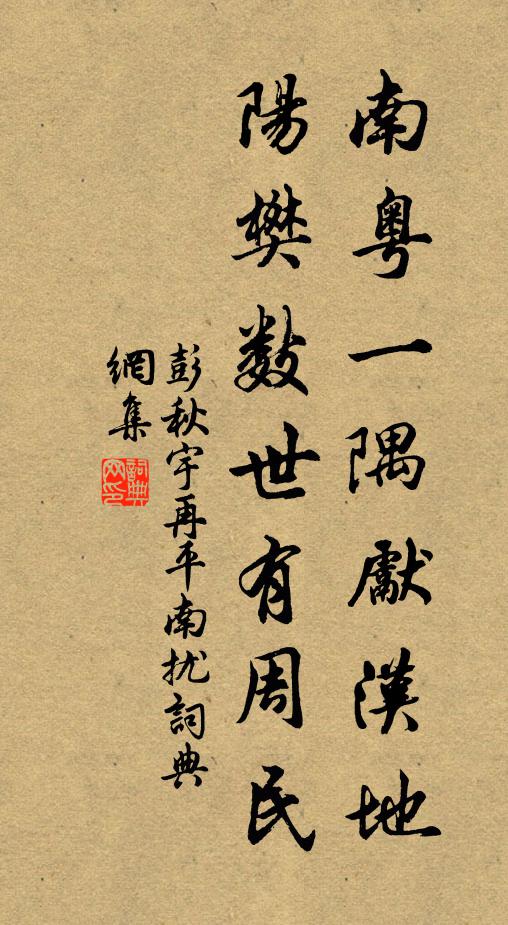 南粵一隅獻漢地
陽樊數世有周民
彭秋宇再平南扰詞典
網集
詞典
网印